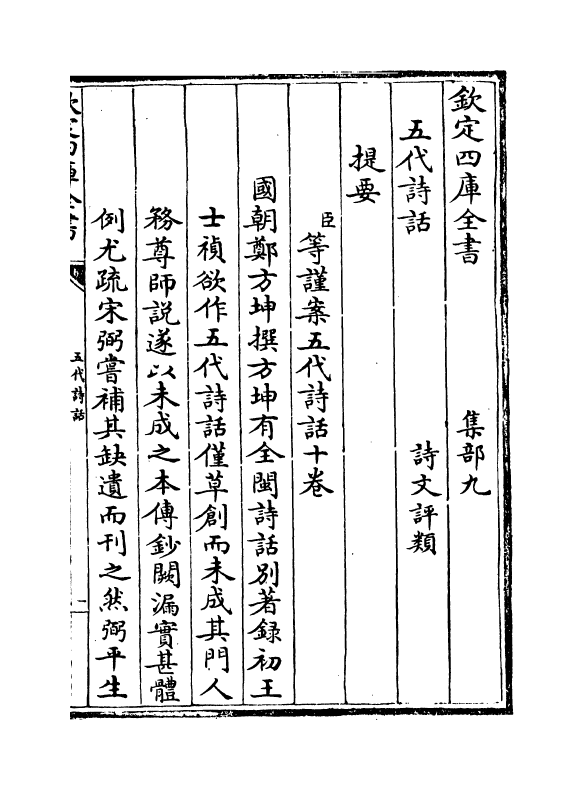 欽定四庫全書 集部九
五代詩話 詩文評類
提要
臣等謹案五代詩話十卷
國朝鄭方坤撰方坤有全閩詩話别著録初王
士禎欲作五代詩話僅草創而未成其門人
務尊師説遂以未成之本傳鈔闕漏實甚體
例尤疏宋弼嘗補其缺遺而刊之然弼平生
欽定四庫全書
五代詩話
一